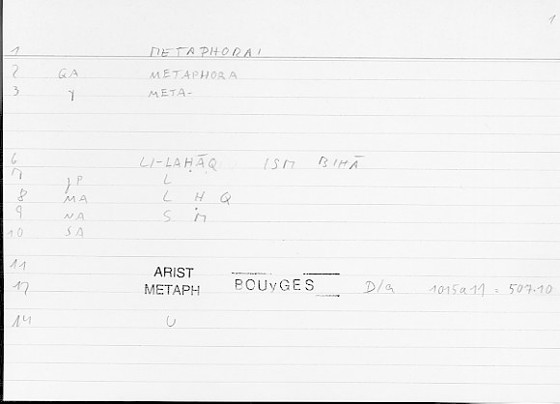 1
1 METAPHORAI
2 GA METAPHORA
3 γ META-
6 LI-LAḤĀQ ISM BIHĀ
7 γP L
8 MA L Ḥ Q
9 NA S M
10 SA
11 ARIST
12 METAPH BOUYGES D/a 1015a11 = 507.10
14 U